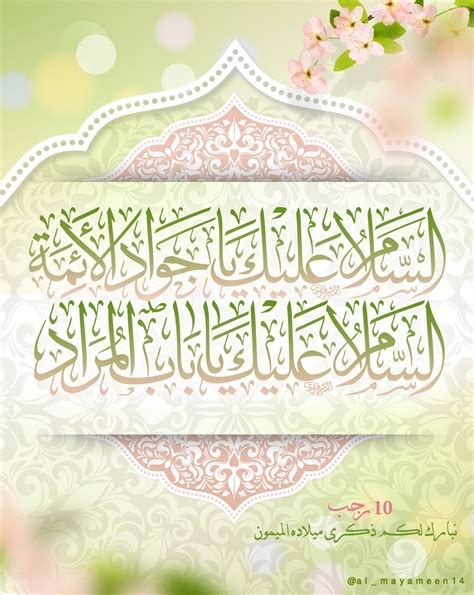 السلام عليك يا جواد الأئمة
السلام عليك يا باب المراد
10 رجب
نبارك لكم ذكرى ميلاده الميمون
@al_mayameen14